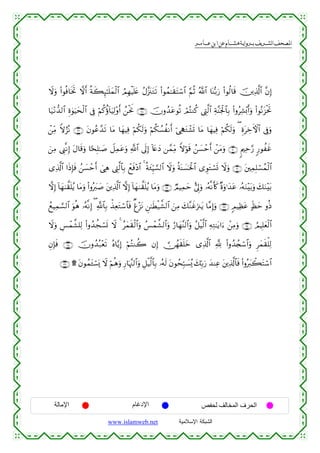 المصحف الشريف برواية هشام عن ابن عامر
إِنَّ ٱلَّذِينَ قَالُوا۟ رَبُّنَا ٱللَّهُ ثُمَّ ٱسْتَقَٰمُوا۟ تَتَنَزَّلُ عَلَيْهِمُ ٱلْمَلَٰٓئِكَةُ أَلَّا تَخَافُوا۟ وَلَا
تَحْزَنُوا۟ وَأَبْشِرُوا۟ بِٱلْجَنَّةِ ٱلَّتِى كُنتُمْ تُوعَدُونَ ﴿٣٠﴾ نَحْنُ أَوْلِيَآؤُكُمْ فِى ٱلْحَيَوٰةِ ٱلدُّنْيَا
وَفِى ٱلْءَاخِرَةِ وَلَكُمْ فِيهَا مَا تَشْتَهِىٓ أَنفُسُكُمْ وَلَكُمْ فِيهَا مَا تَدَّعُونَ ﴿٣١﴾ نُزُلًا مِّنْ
غَفُورٍ رَّحِيمٍ ﴿٣٢﴾ وَمَنْ أَحْسَنُ قَوْلًا مِّمَّن دَعَآ إِلَى ٱللَّهِ وَعَمِلَ صَٰلِحًا وَقَالَ إِنَّنِى مِنَ
ٱلْمُسْلِمِينَ ﴿٣٣﴾ وَلَا تَسْتَوِى ٱلْحَسَنَةُ وَلَا ٱلسَّيِّئَةُ ٱدْفَعْ بِٱلَّتِى هِىَ أَحْسَنُ فَإِذَا ٱلَّذِى
بَيْنَكَ وَبَيْنَهُۥ عَدَٰوَةٌ كَأَنَّهُۥ وَلِىٌّ حَمِيمٌ ﴿٣٤﴾ وَمَا يُلَقَّىٰهَآ إِلَّا ٱلَّذِينَ صَبَرُوا۟ وَمَا يُلَقَّىٰهَآ إِلَّا
ذُو حَظٍّ عَظِيمٍ ﴿٣٥﴾ وَإِمَّا يَنزَغَنَّكَ مِنَ ٱلشَّيْطَٰنِ نَزْغٌ فَٱسْتَعِذْ بِٱللَّهِ إِنَّهُۥ هُوَ ٱلسَّمِيعُ
ٱلْعَلِيمُ ﴿٣٦﴾ وَمِنْ ءَايَٰتِهِ ٱلَّيْلُ وَٱلنَّهَارُ وَٱلشَّمْسُ وَٱلْقَمَرُ لَا تَسْجُدُوا۟ لِلشَّمْسِ وَلَا
لِلْقَمَرِ وَٱسْجُدُوا۟ لِلَّهِ ٱلَّذِى خَلَقَهُنَّ إِن كُنتُمْ إِيَّاهُ تَعْبُدُونَ ﴿٣٧﴾ فَإِنِ
ٱسْتَكْبَرُوا۟ فَٱلَّذِينَ عِندَ رَبِّكَ يُسَبِّحُونَ لَهُۥ بِٱلَّيْلِ وَٱلنَّهَارِ وَهُمْ لَا يَسْـَٔمُونَ ۩ ﴿٣٨﴾
الحرف المخالف لحفص الإدغام الإمالة
الشبكة الإسلامية www.islamweb.net